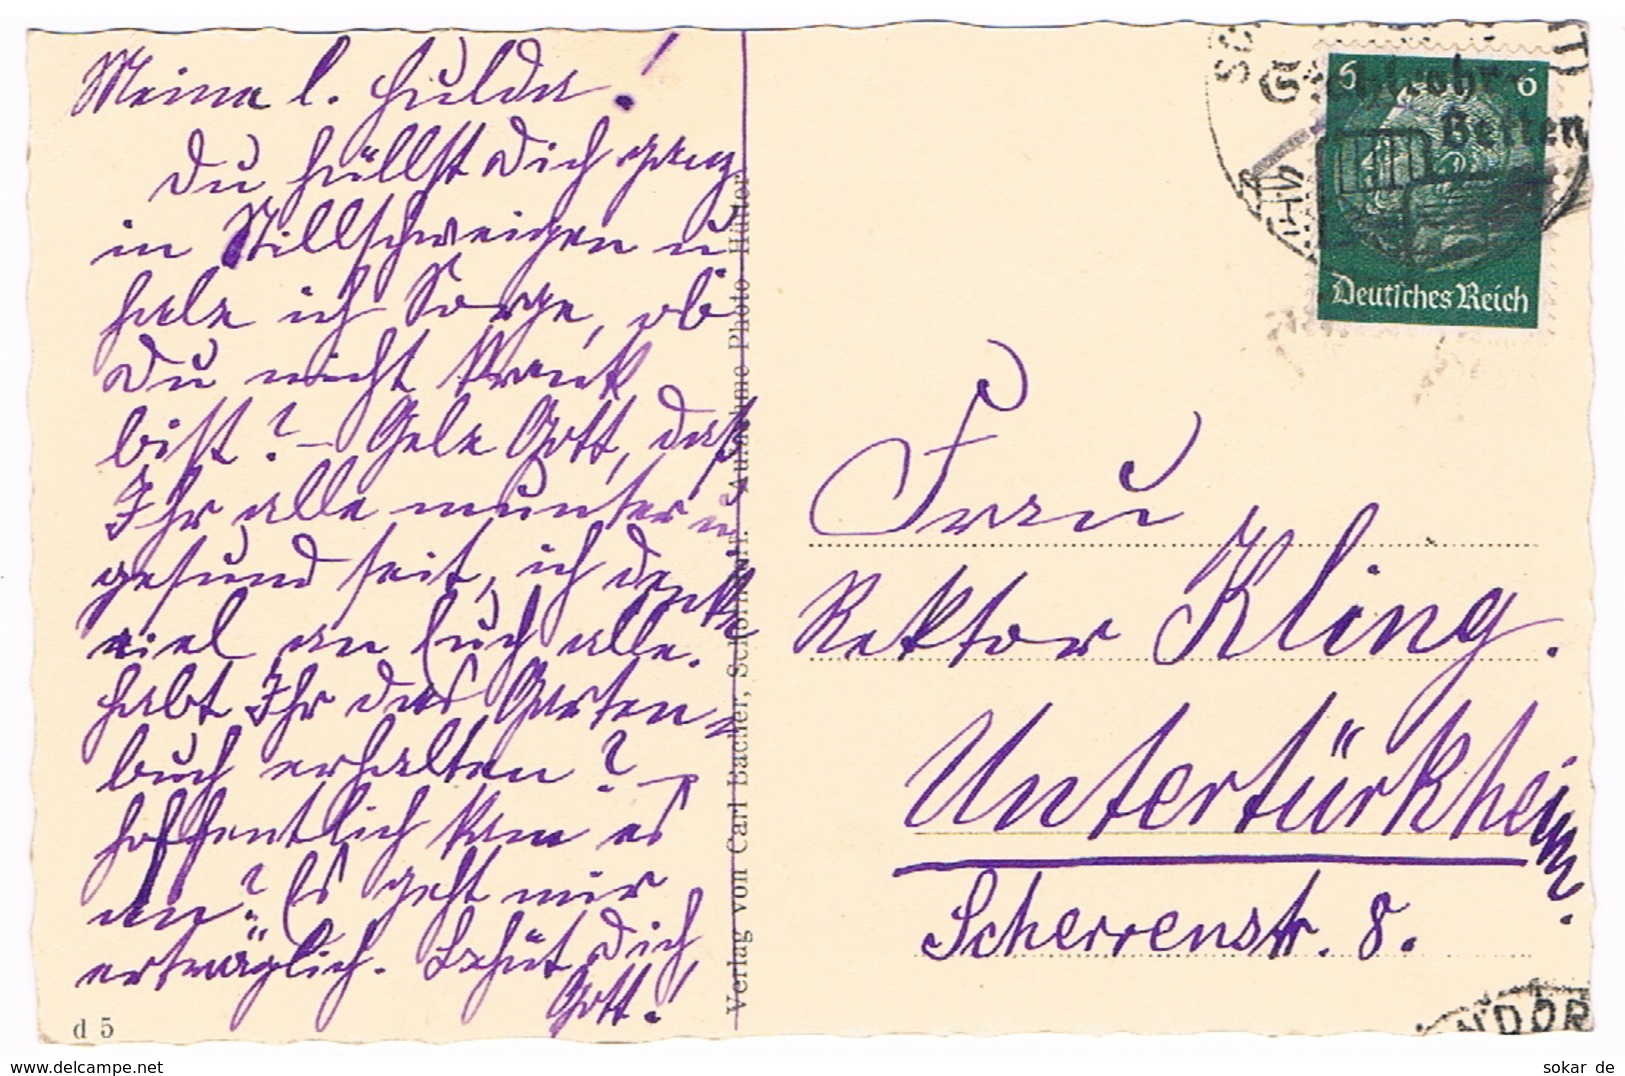 Meine l. Hulda!
Du hüllst Dich ganz
in Stillschweigen u
habe ich Sorge, ob
Du nicht krank
bist? – Gebe Gott, daß
Ihr alle munter u
gesund seit, ich denke
viel an Euch alle.
habt Ihr das Garten-
buch erhalten? –
hoffentlich kam es
an? Es geht mir
erträglich. Behüt Dich
Gott!
d 5
Verlag von Carl Bacher, Schorndorf. Aufnahme Photo Hütter
6 6
Deutsches Reich
Stahlrohr
Betten
NDOR
Frau
Rektor Kling.
Untertürkheim.
Scherrenstr. 8.
sokar de
www.delcampe.net